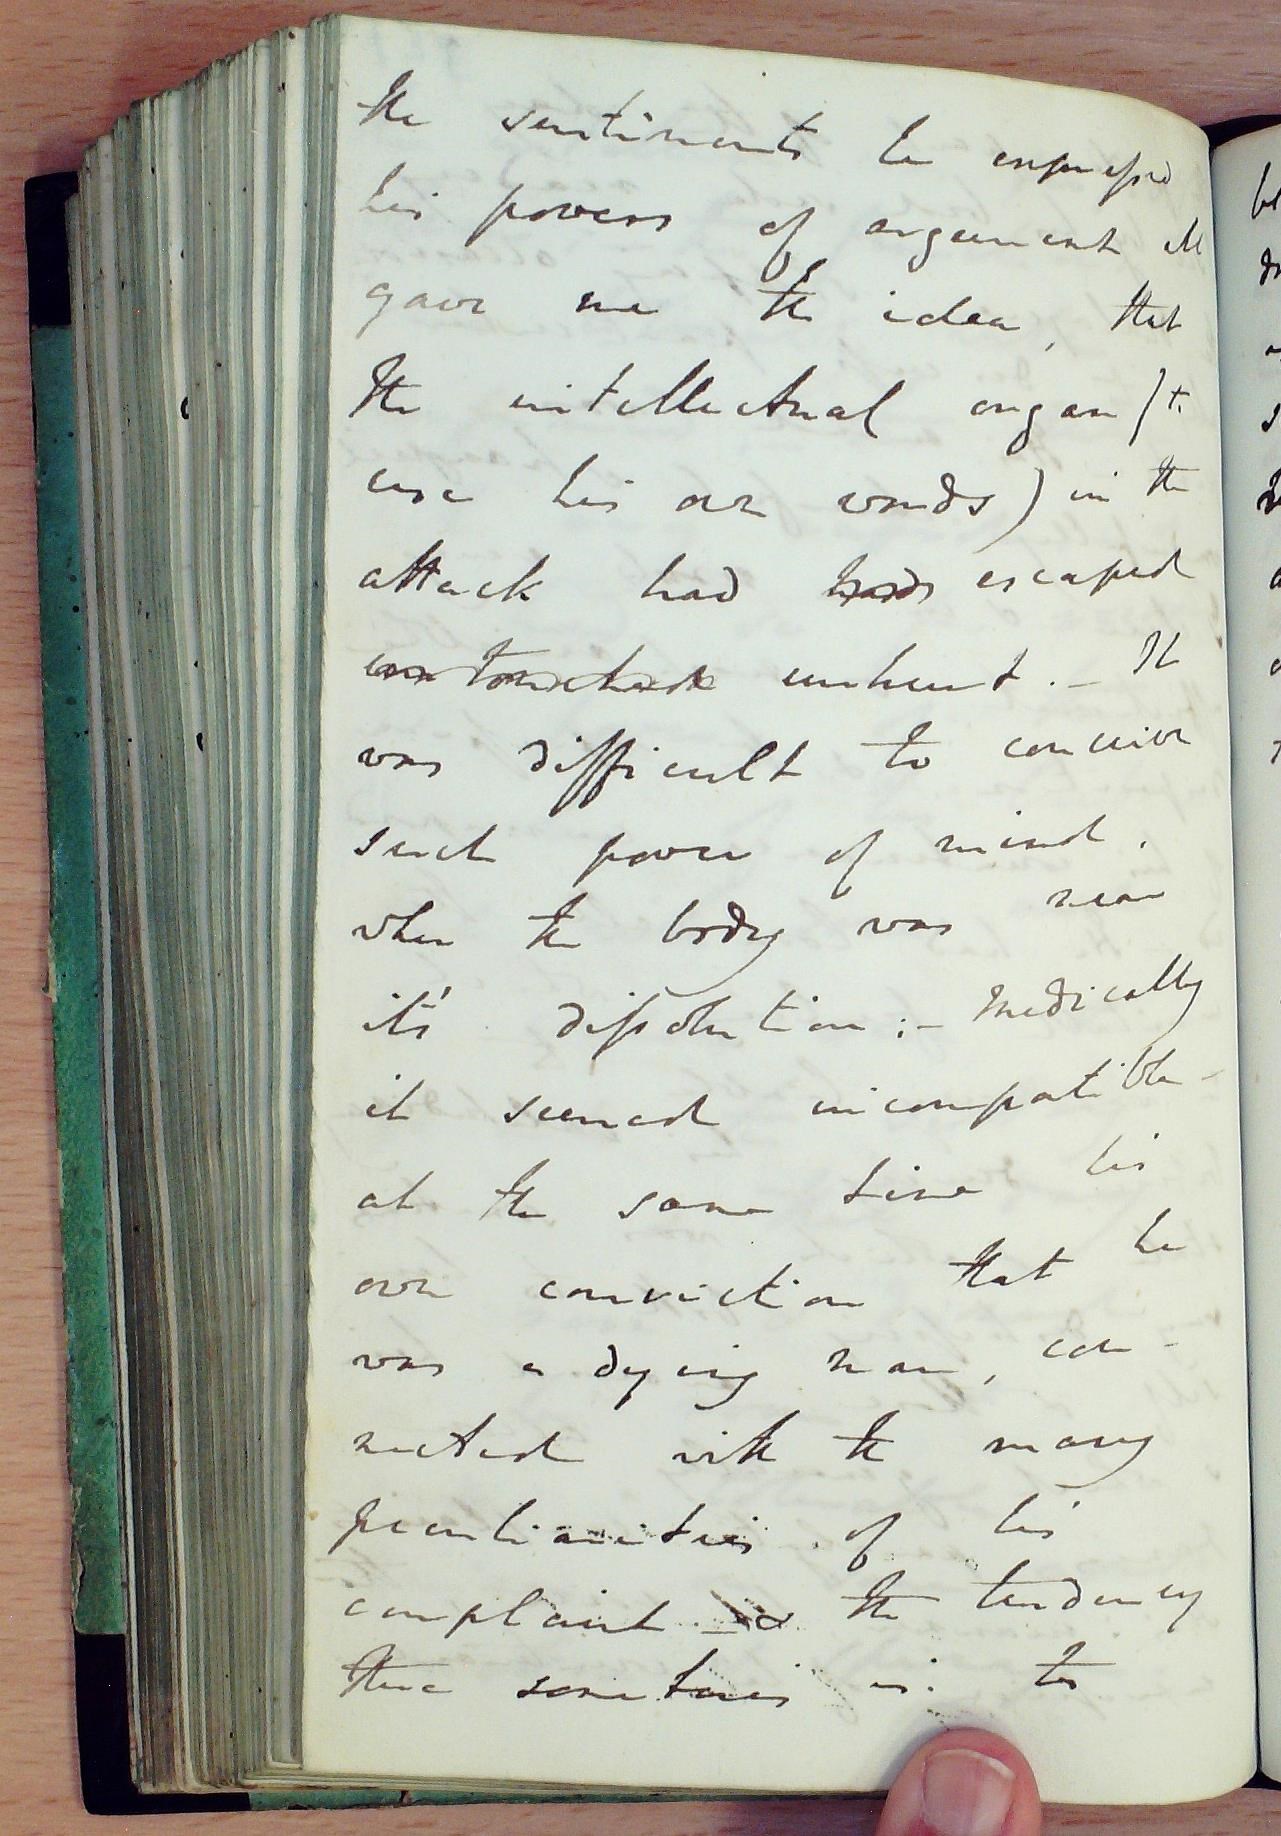 the sentiments he expressed
his powers of argument all
gave me the idea, that
the intellectual organ (to
use his own words) in the
attack had escaped
untouched unhurt. - It
was difficult to conceive
such power of mind,
when the body was near
it's dissolution; - Medically
it seemed incompatible -
at the same time his
own conviction that he
was a dying man, con-
nected with the many
peculiarities of his
complaint & the tendency
there sometimes is to